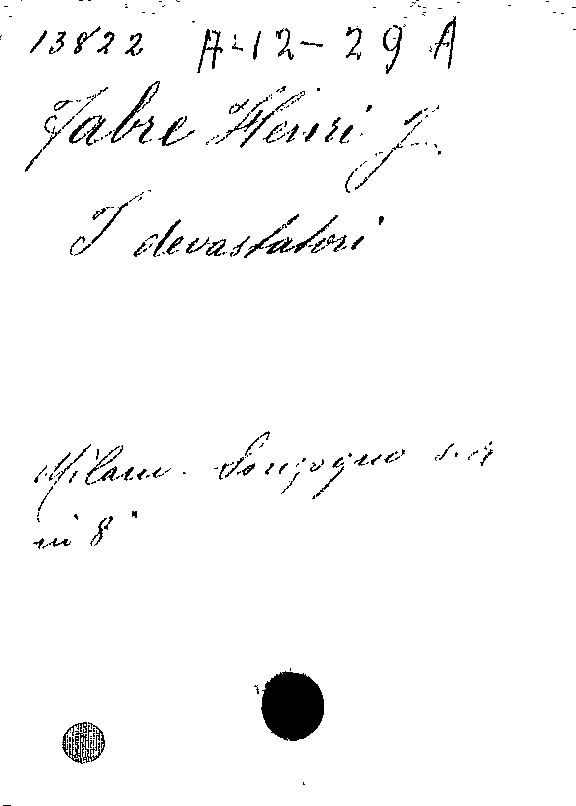 13822 A-12-29 A
Fabre Henri J.
I devastatori
Milano. Sonzogno s. a
in 8°